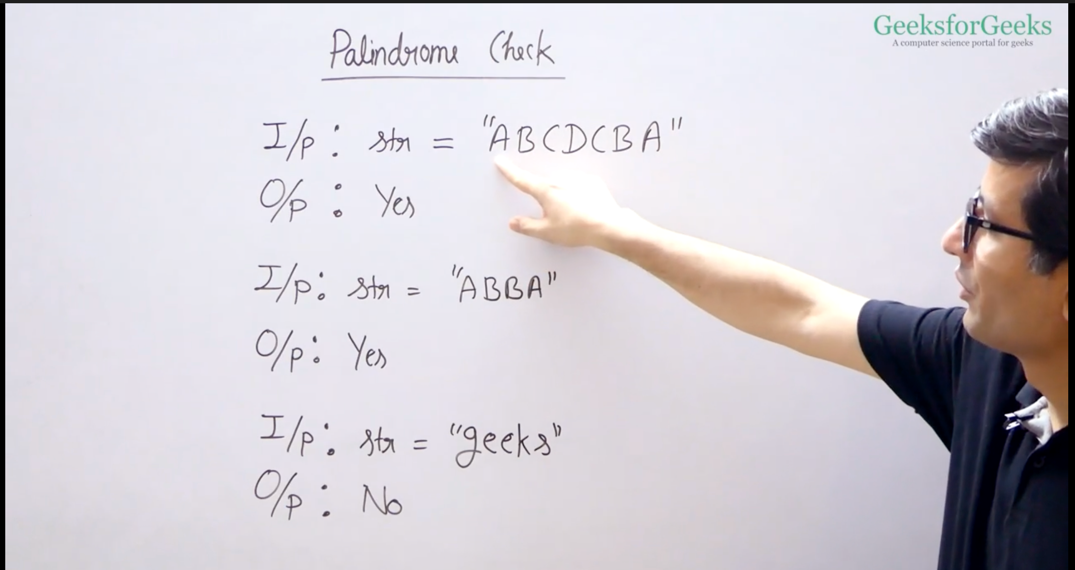 GeeksforGeeks
A computer science portal for geeks
Palindrome Check
I/p : str = "ABCDCBA"
O/p : Yes
I/p : str = "ABBA"
O/p : Yes
I/p : str = "geeks"
O/p : No